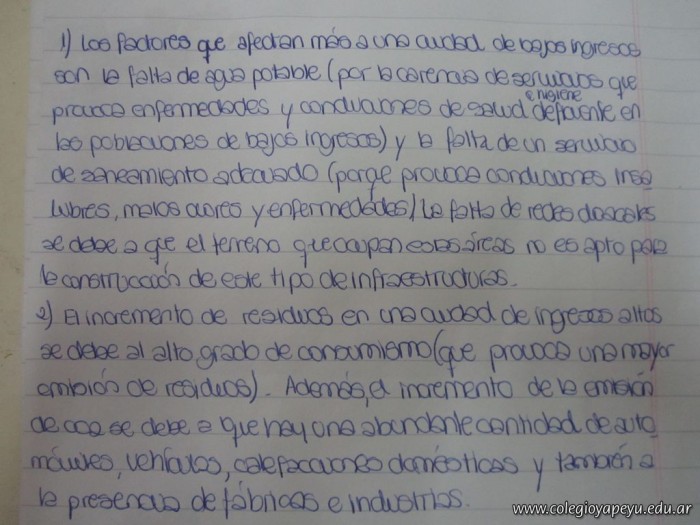 1) Los factores que afectan más a una ciudad de bajos ingresos
son la falta de agua potable (por la carencia de servicios que
provoca enfermedades y condiciones de salud e higiene deficiente en
las poblaciones de bajos ingresos) y la falta de un servicio
de saneamiento adecuado (porque provoca condiciones insa
lubres, malos olores y enfermedades) La falta de redes cloacales
se debe a que el terreno que ocupan estas áreas no es apto para
la construcción de este tipo de infraestructuras.
2) El incremento de residuos en una ciudad de ingresos altos
se debe al alto grado de consumismo (que provoca una mayor
emisión de residuos). Además, el incremento de la emisión
de co2 se debe a que hay una abundante cantidad de auto
móviles, vehículos, calefacciones domésticas y también a
la presencia de fábricas e industrias.
www.colegioyapeyu.edu.ar